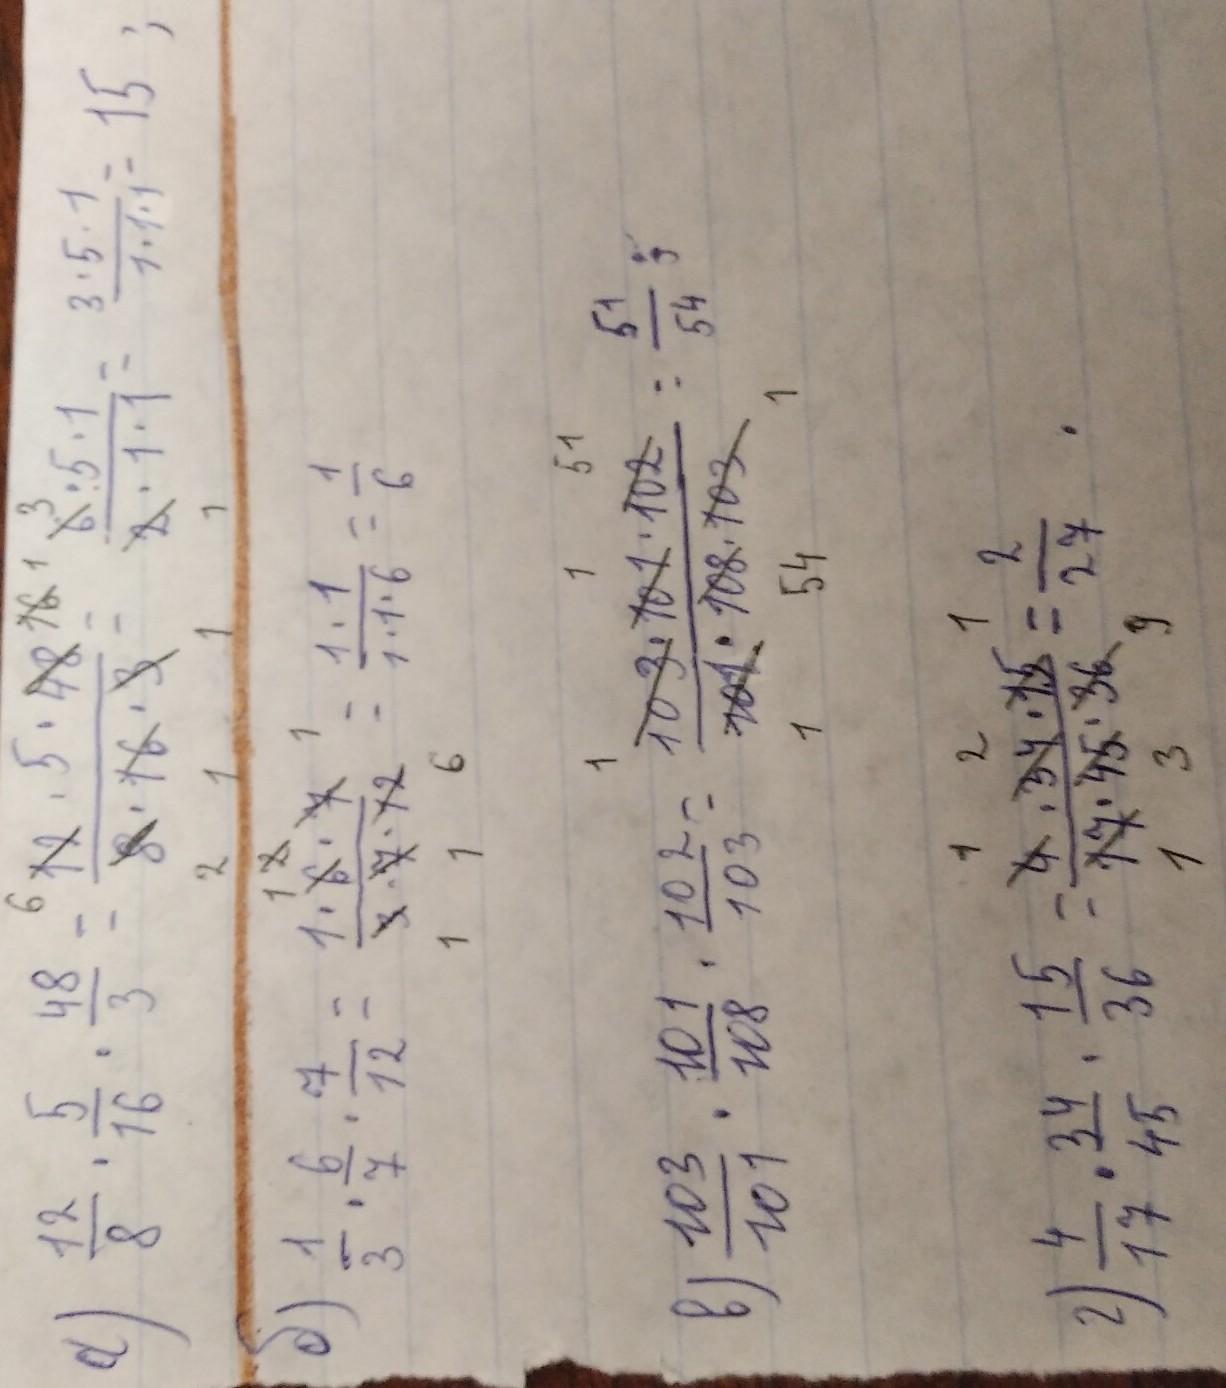 а) 12/8 · 5/16 · 48/3 = 12 · 5 · 48 / 8 · 16 · 3 = 6 · 5 · 1 / 2 · 1 · 1 = 3 · 5 · 1 / 1 · 1 · 1 = 15 ;
б) 1/3 · 6/7 · 7/12 = 1 · 6 · 7 / 3 · 7 · 12 = 1 · 1 / 1 · 1 · 6 = 1/6
в) 103/101 · 101/108 · 102/103 = 103 · 101 · 102 / 101 · 108 · 103 = 51/54 ;
г) 4/17 · 34/45 · 15/36 = 4 · 34 · 15 / 17 · 45 · 36 = 2/27 .